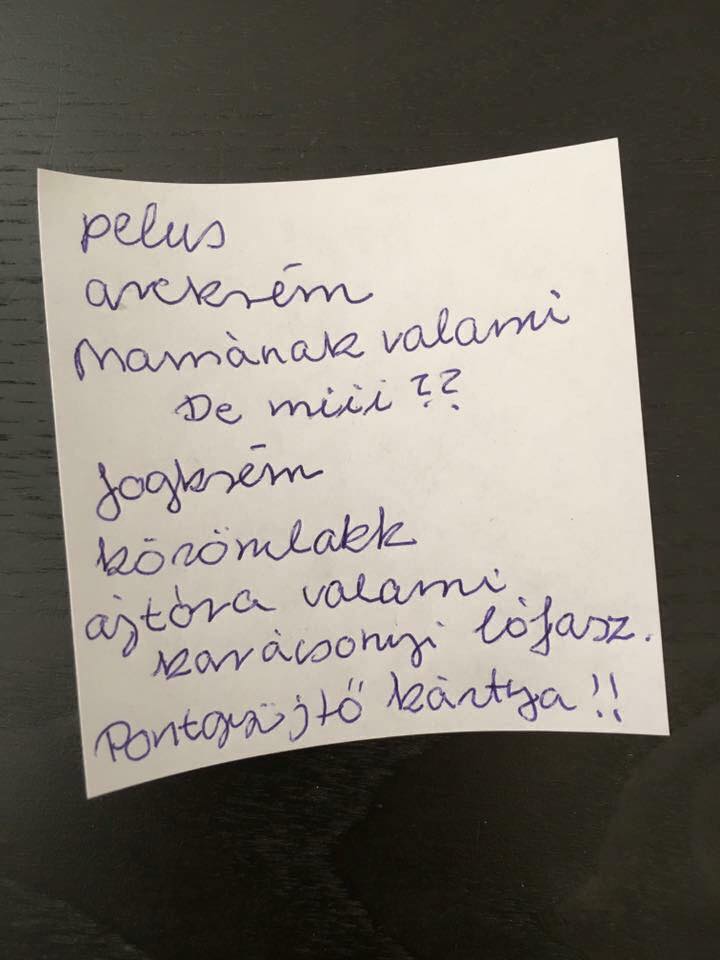 pelus
arckrém
Mamának valami
De miii ??
fogkrém
körömlakk
ajtóra valami
karácsonyi lófasz.
Pontgyűjtő kártya!!